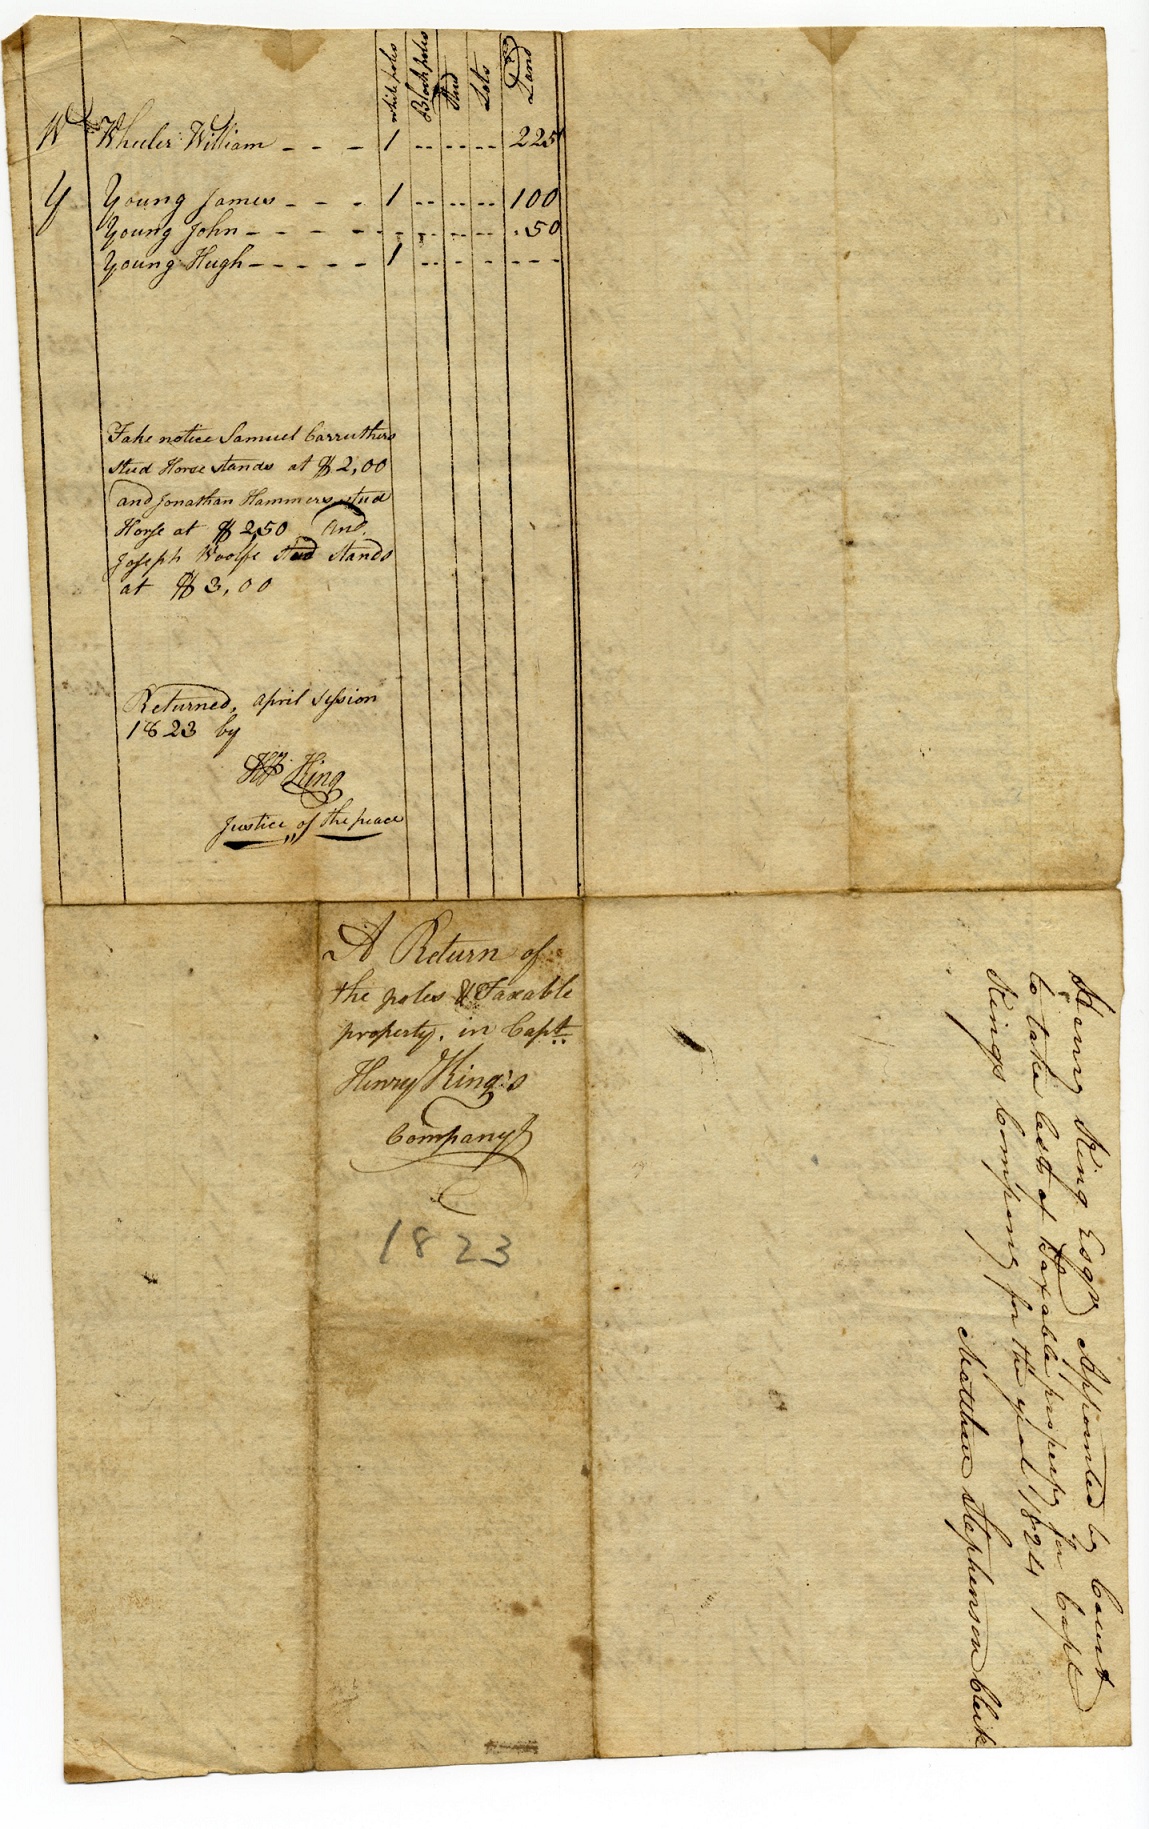 White poles Black poles Stud Lots Land
W Wheeler William - - - 1 -- -- -- 225
Y Young James - - - 1 -- -- -- 100
Young John - - - - - -- -- -- . 50
Young Hugh - - - - - 1 -- -- - - - -
Take notice Samuel Carruthers
stud Horse stands at $ 2,00
and Jonathan Hammers stud
Horse at $ 2,50 and
Joseph Woolfe stud stands
at $ 3,00
Returned, april session
1823 by
King
Justice of the peace
A Return of
the poles & Taxable
property, in Capt.
Henry King's
Company
1823
Henry King Esqr Appointed by Court
to take list of Taxable property for Capt
Kings Company for the year 1824
Matthew Stephenson Clerk